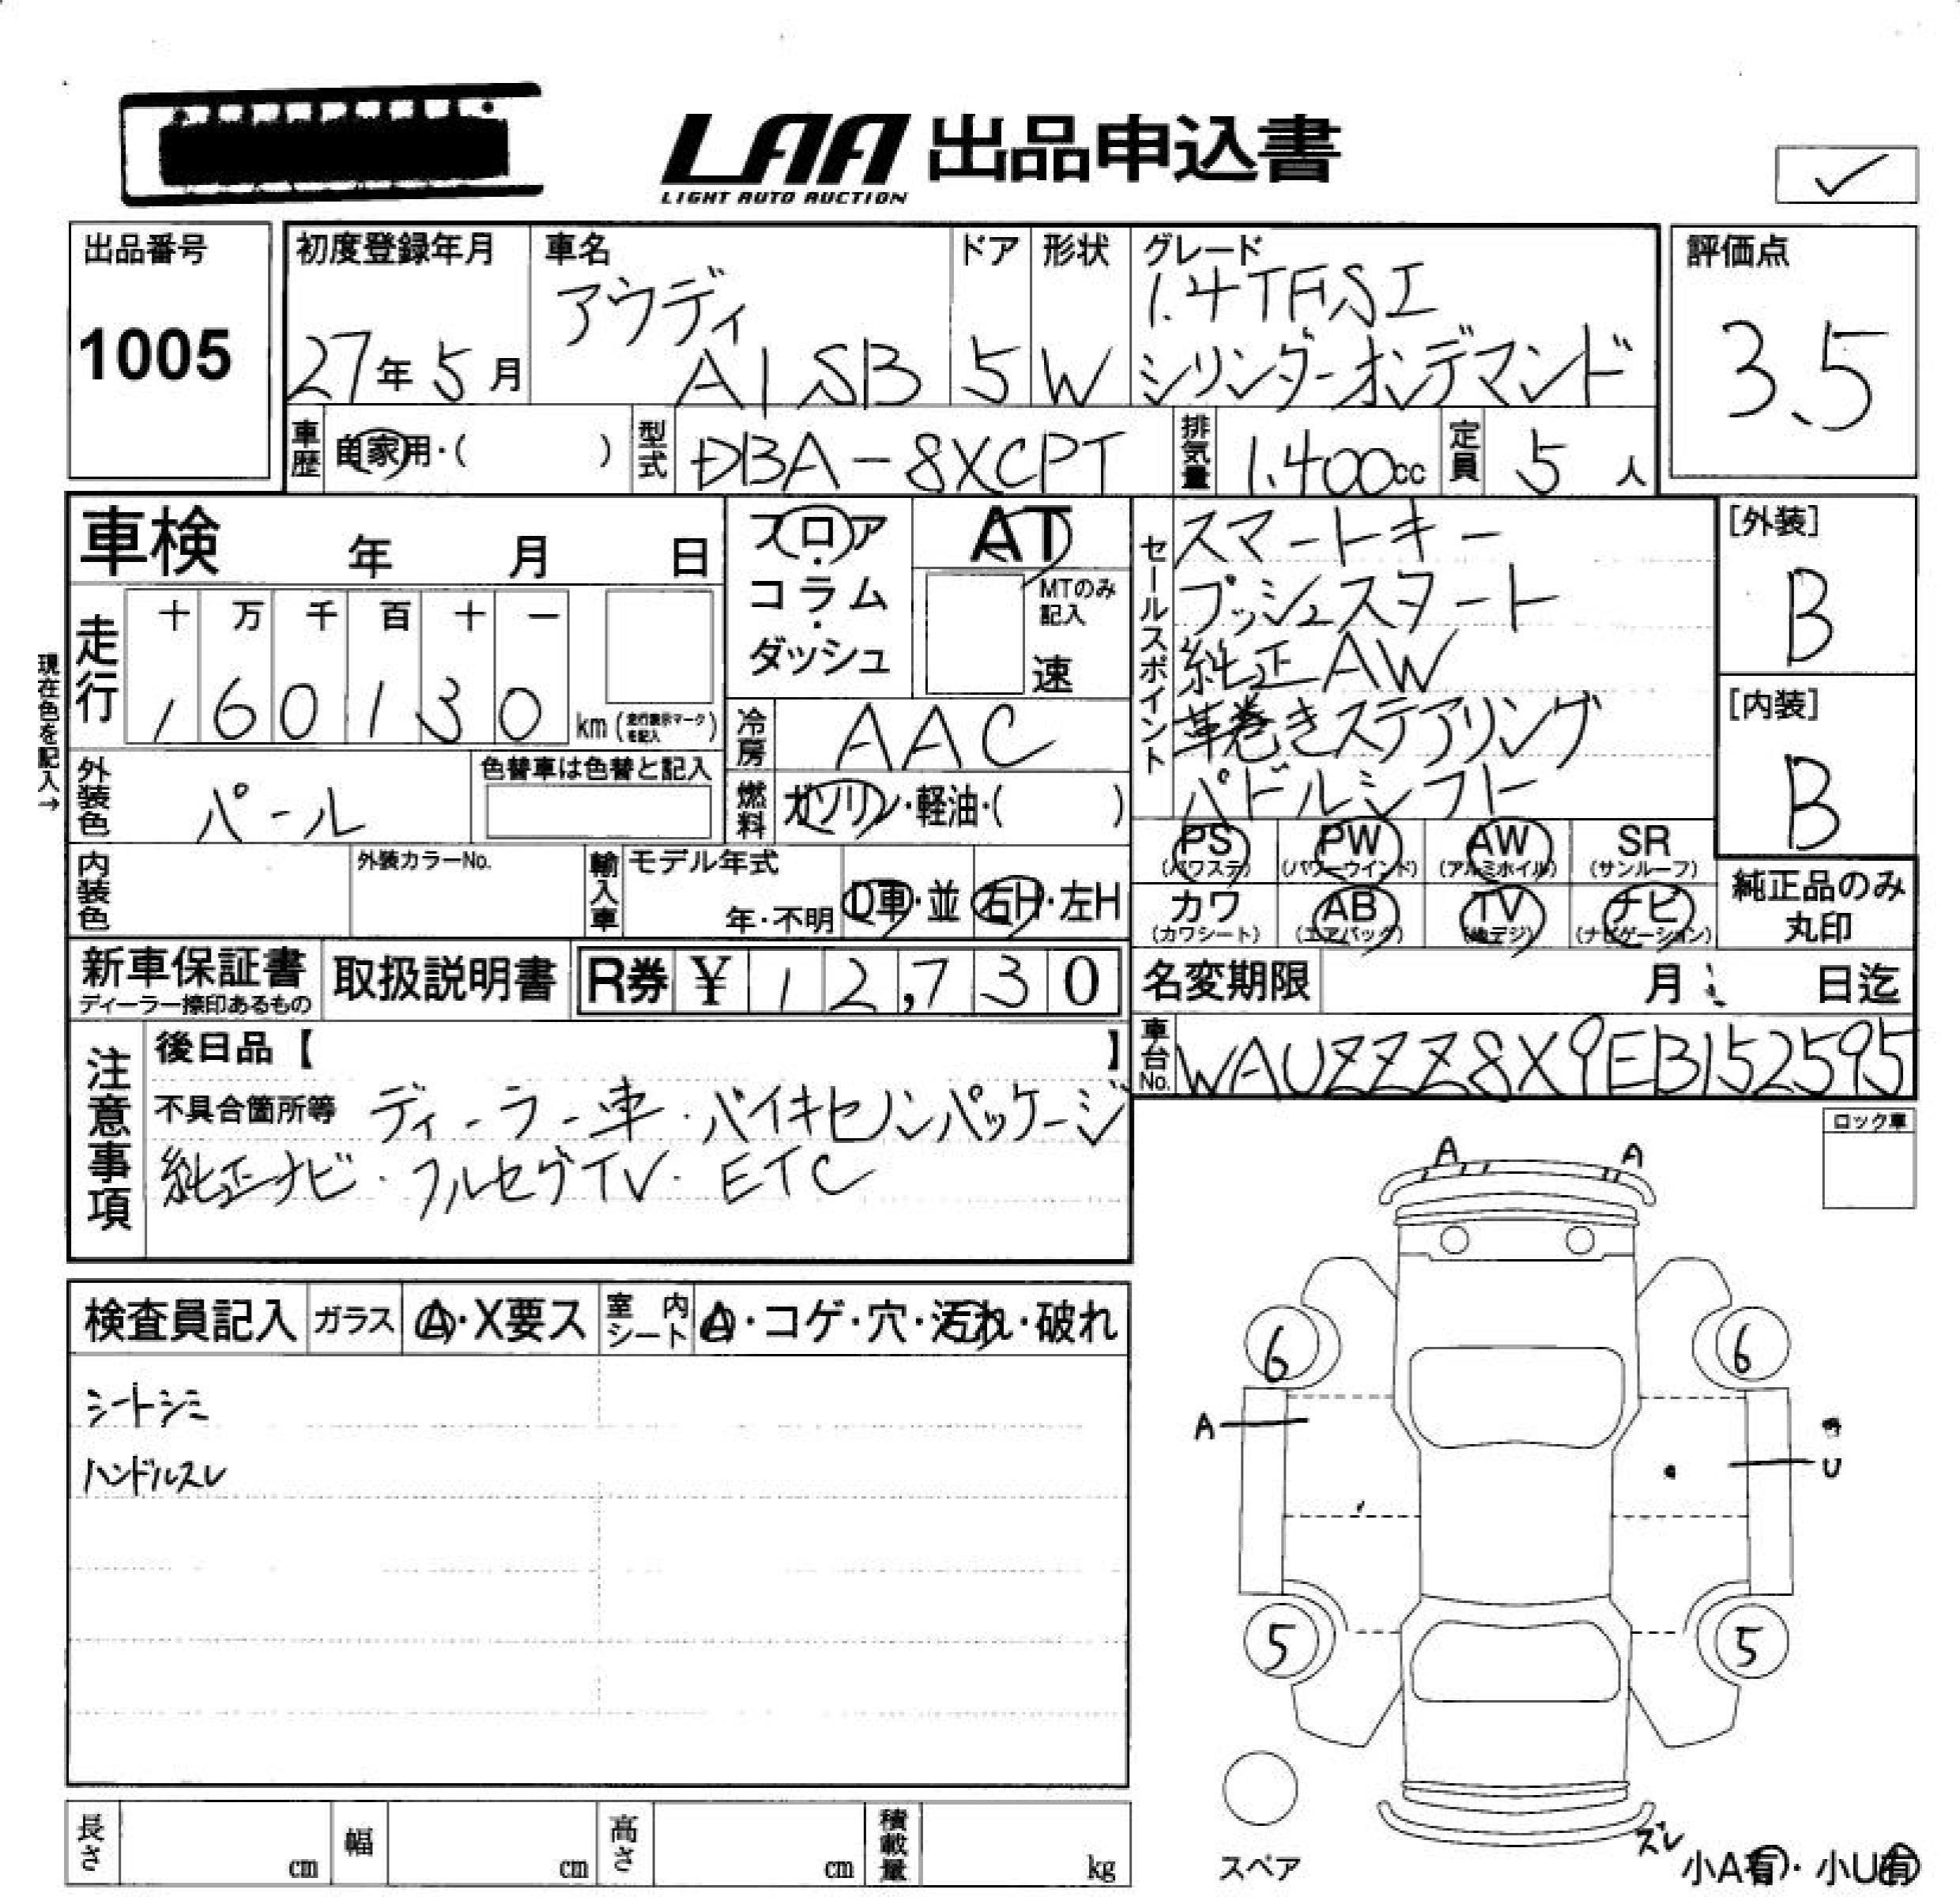 LAA 出品申込書
LIGHT AUTO AUCTION
✓
出品番号
1005
初度登録年月
27年5月
車名
アウディ
A1 SB
ドア
5
形状
W
グレード
1.4TFSI
シリンダーオンデマンド
評価点
3.5
車歴
自家用・( )
型式
DBA-8XCPT
排気量
1,400cc
定員
5人
車検 年 月 日
走行
十 万 千 百 十 一
1 6 0 1 3 0 km (走行表示マークを記入)
現在色を記入→
外装色
パール
色替車は色替と記入
内装色
外装カラーNo.
フロア・コラム・ダッシュ
AT
MTのみ記入
速
冷房
AAC
燃料
ガソリン・軽油・( )
輸入車
モデル年式
年・不明
D車・並
右H・左H
セールスポイント
スマートキー
プッシュスタート
純正AW
革巻きステアリング
パドルシフト
[外装]
B
[内装]
B
PS (パワステ)
PW (パワーウインド)
AW (アルミホイル)
SR (サンルーフ)
カワ (カワシート)
AB (エアバック)
TV (地デジ)
ナビ (ナビゲーション)
純正品のみ丸印
新車保証書
ディーラー捺印あるもの
取扱説明書
R券 ¥12,730
名変期限 月 日迄
車台No.
WAUZZZ8X9EB152595
注意事項
後日品【 】
不具合箇所等 ディーラー車・バイキセノンパッケージ
純正ナビ・フルセグTV・ETC
ロック車
検査員記入
ガラス
A・X要ス
室内シート
A・コゲ・穴・汚れ・破れ
シートシミ
ハンドルスレ
A A
6 6
A
U
5 5
スペア
ズレ
小A有・小U有
長さ cm
幅 cm
高さ cm
積載量 kg